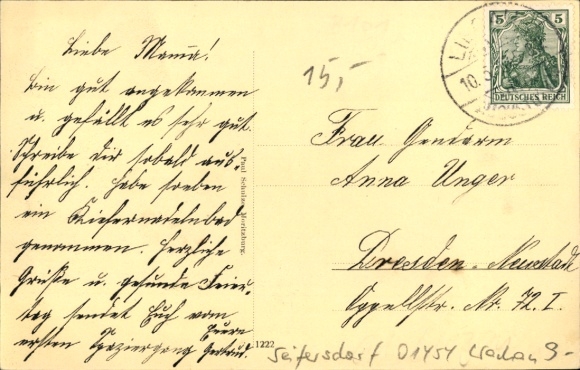 Liebe Mama!
Bin gut angekommen
u. gefällt es sehr gut.
Schreibe Dir sobald aus-
führlich. Habe soeben
ein Kiefernadelbad
genommen. Herzliche
Grüße u. gesunde Feier-
tag sendet Euch vom
ersten Spaziergang Eure
Gertrud.
15,-
5 5
DEUTSCHES REICH
10.
Frau Gendarm
Anna Unger
Dresden-Neustadt
Oppellstr. Nr. 72. I.
Paul Schulze, Moritzburg.
1222
Seifersdorf 01454 Wachau 9-